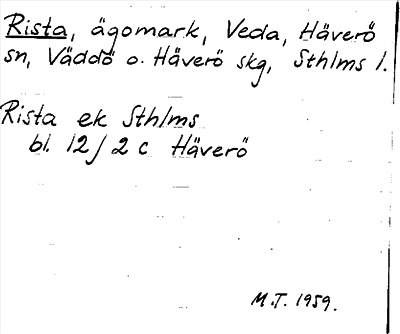 Rista, ägomark, Veda, Häverö
sn, Väddö o. Häverö skg, Sthlms l.
Rista ek Sthlms
bl. 12/2 c Häverö
M.T. 1959.